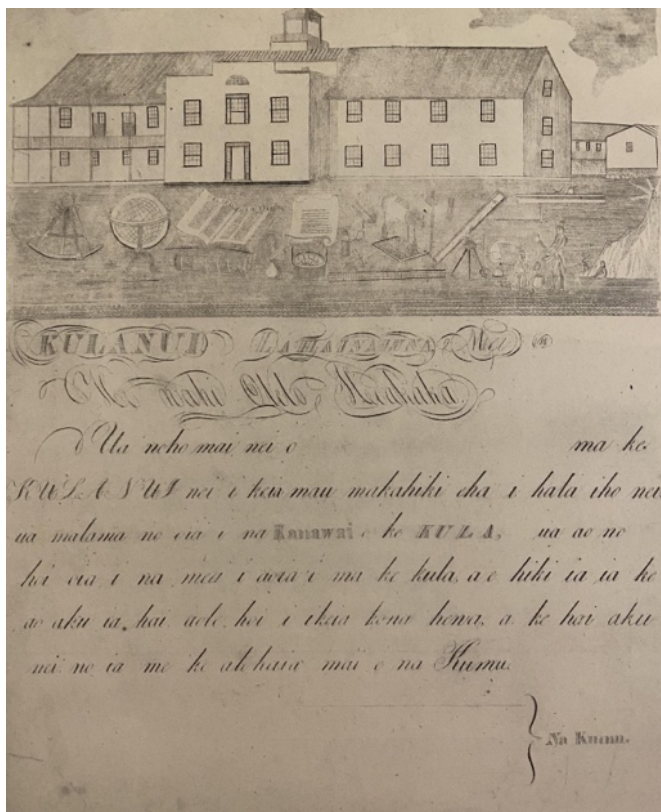 KULANUI LAHAINALUNA, Mei
He wahi Olo Hoakaka.
Ua noho mai nei o ma ke
KULANUI nei i keia mau makahiki eha i hala iho nei
ua malama no oia i na Kanawai o ke KULA, ua ao no
hoi oia i na mea i aoia'i ma ke kula, a e hiki ia ia ke
ao aku ia hai, aole hoi i ikeia kona hewa, a ke hoi aku
nei no ia me ke alohaia mai o na Kumu.
Na Kumu.